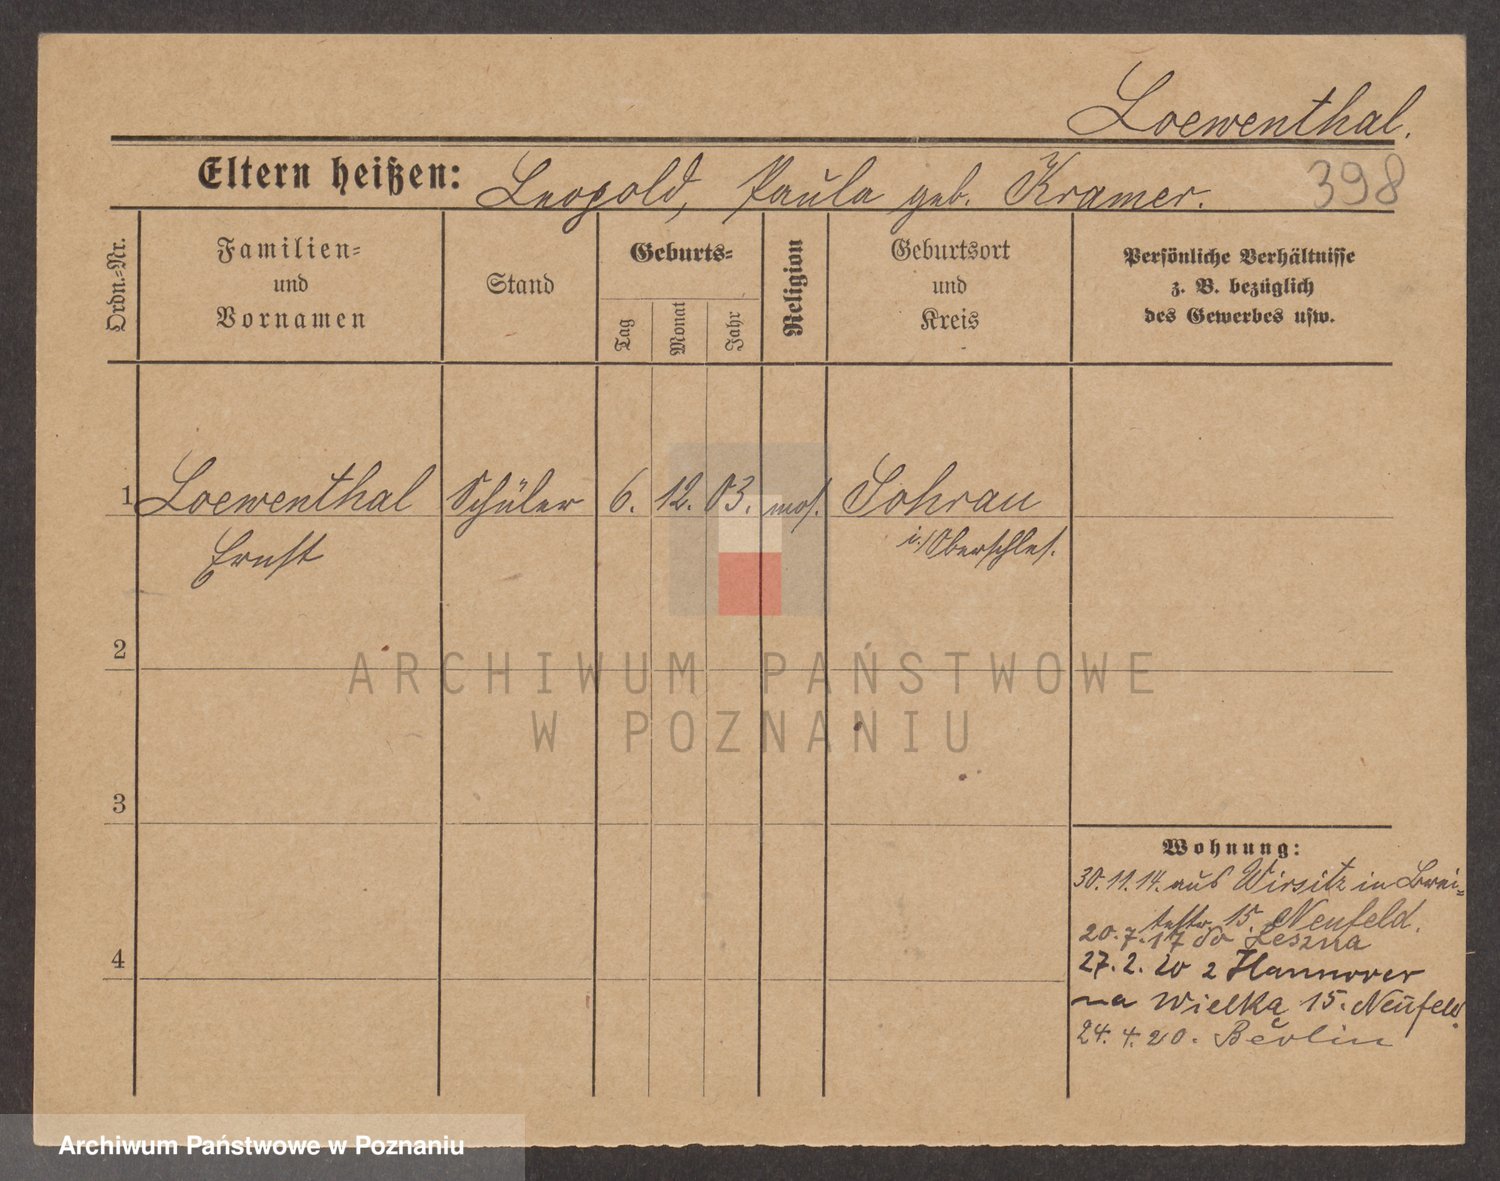 Loewenthal.
Eltern heißen: Leopold, Paula geb. Kramer.
398
Ordn.-Nr.
Familien-
und
Vornamen
Stand
Geburts-
Tag
Monat
Jahr
Religion
Geburtsort
und
Kreis
Persönliche Verhältnisse
z. B. bezüglich
des Gewerbes usw.
1 Loewenthal Schüler 6. 12. 03. mos. Sohrau
Ernst i./Oberschles.
2
3
4
Wohnung:
30.11.14. aus Wirsitz in Brei-
testr. 15. Neufeld.
20.7.17 do Leszna
27.2.20 z Hannover
na Wielka 15. Neufeld.
24.4.20. Berlin
ARCHIWUM PAŃSTWOWE
W POZNANIU
Archiwum Państwowe w Poznaniu